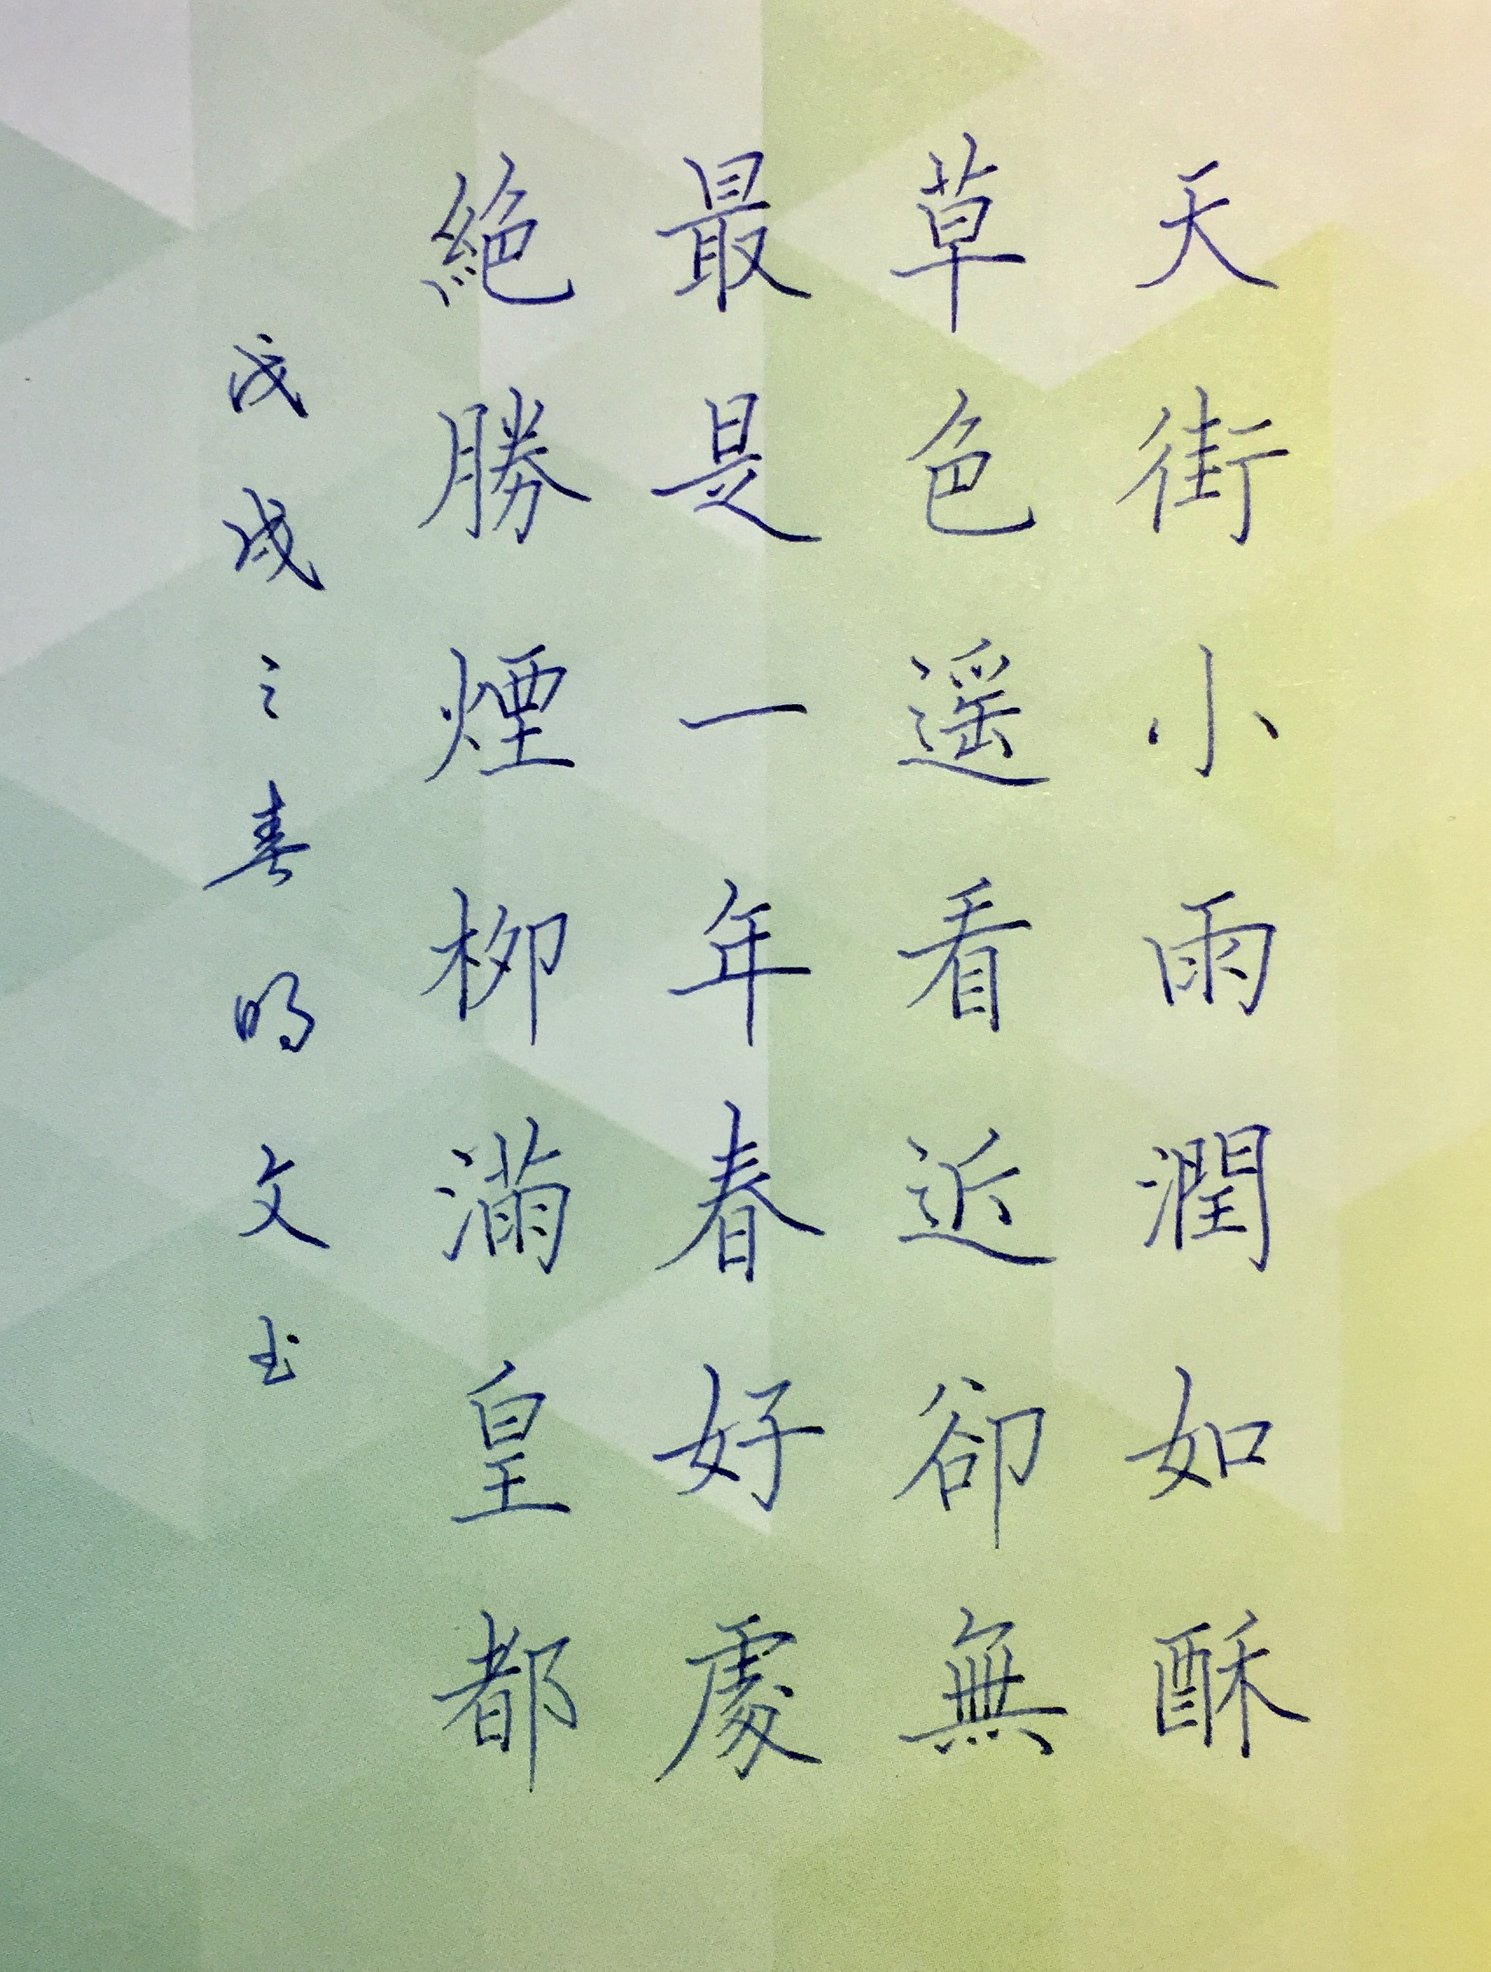 天街小雨潤如酥
草色遥看近卻無
最是一年春好處
絕勝煙柳滿皇都
戊戌之春明文书